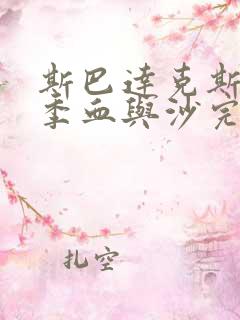 斯巴達克斯
季血與沙完
扎空